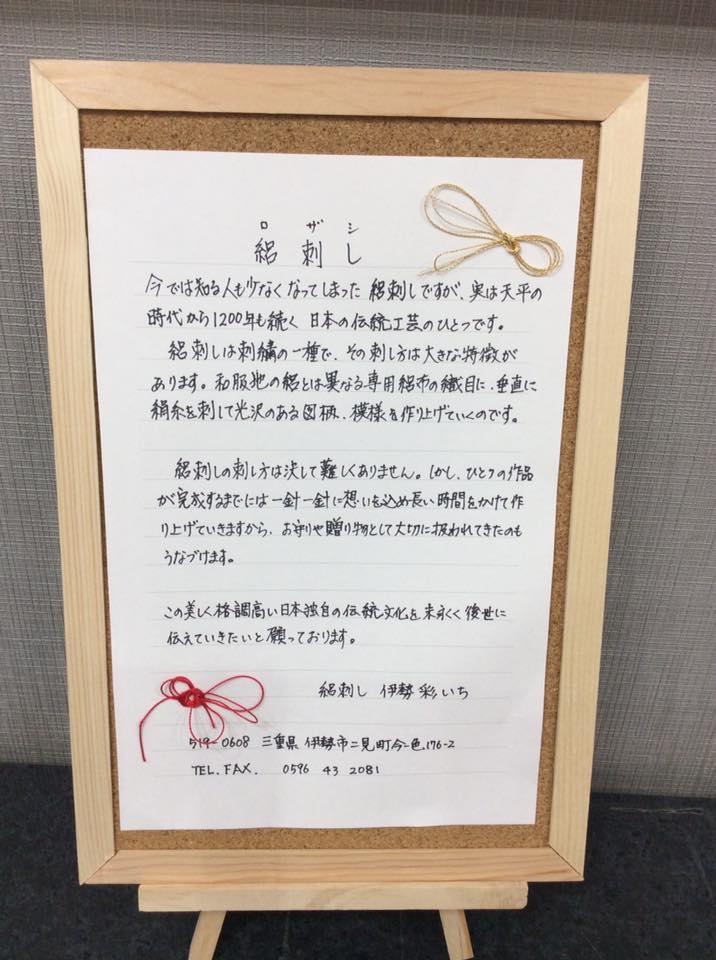 ロザシ
絽刺し
今では知る人も少なくなってしまった 絽刺しですが、実は天平の
時代から1200年も続く 日本の伝統工芸のひとつです。
絽刺しは刺繍の一種で、その刺し方は大きな特徴が
あります。和服地の絽とは異なる専用絽布の織目に、垂直に
絹糸を刺して光沢のある図柄、模様を作り上げていくのです。
絽刺しの刺し方は決して難しくありません。しかし、ひとつの作品
が完成するまでには一針一針に想いを込め長い時間をかけて作
り上げていきますから、お守りや贈り物として大切に扱われてきたのも
うなづけます。
この美しく格調高い日本独自の伝統文化を末永くく後世に
伝えていきたいと願っております。
絽刺し 伊勢 彩いち
519-0608 三重県 伊勢市二見町今一色176-2
TEL.FAX. 0596 43 2081